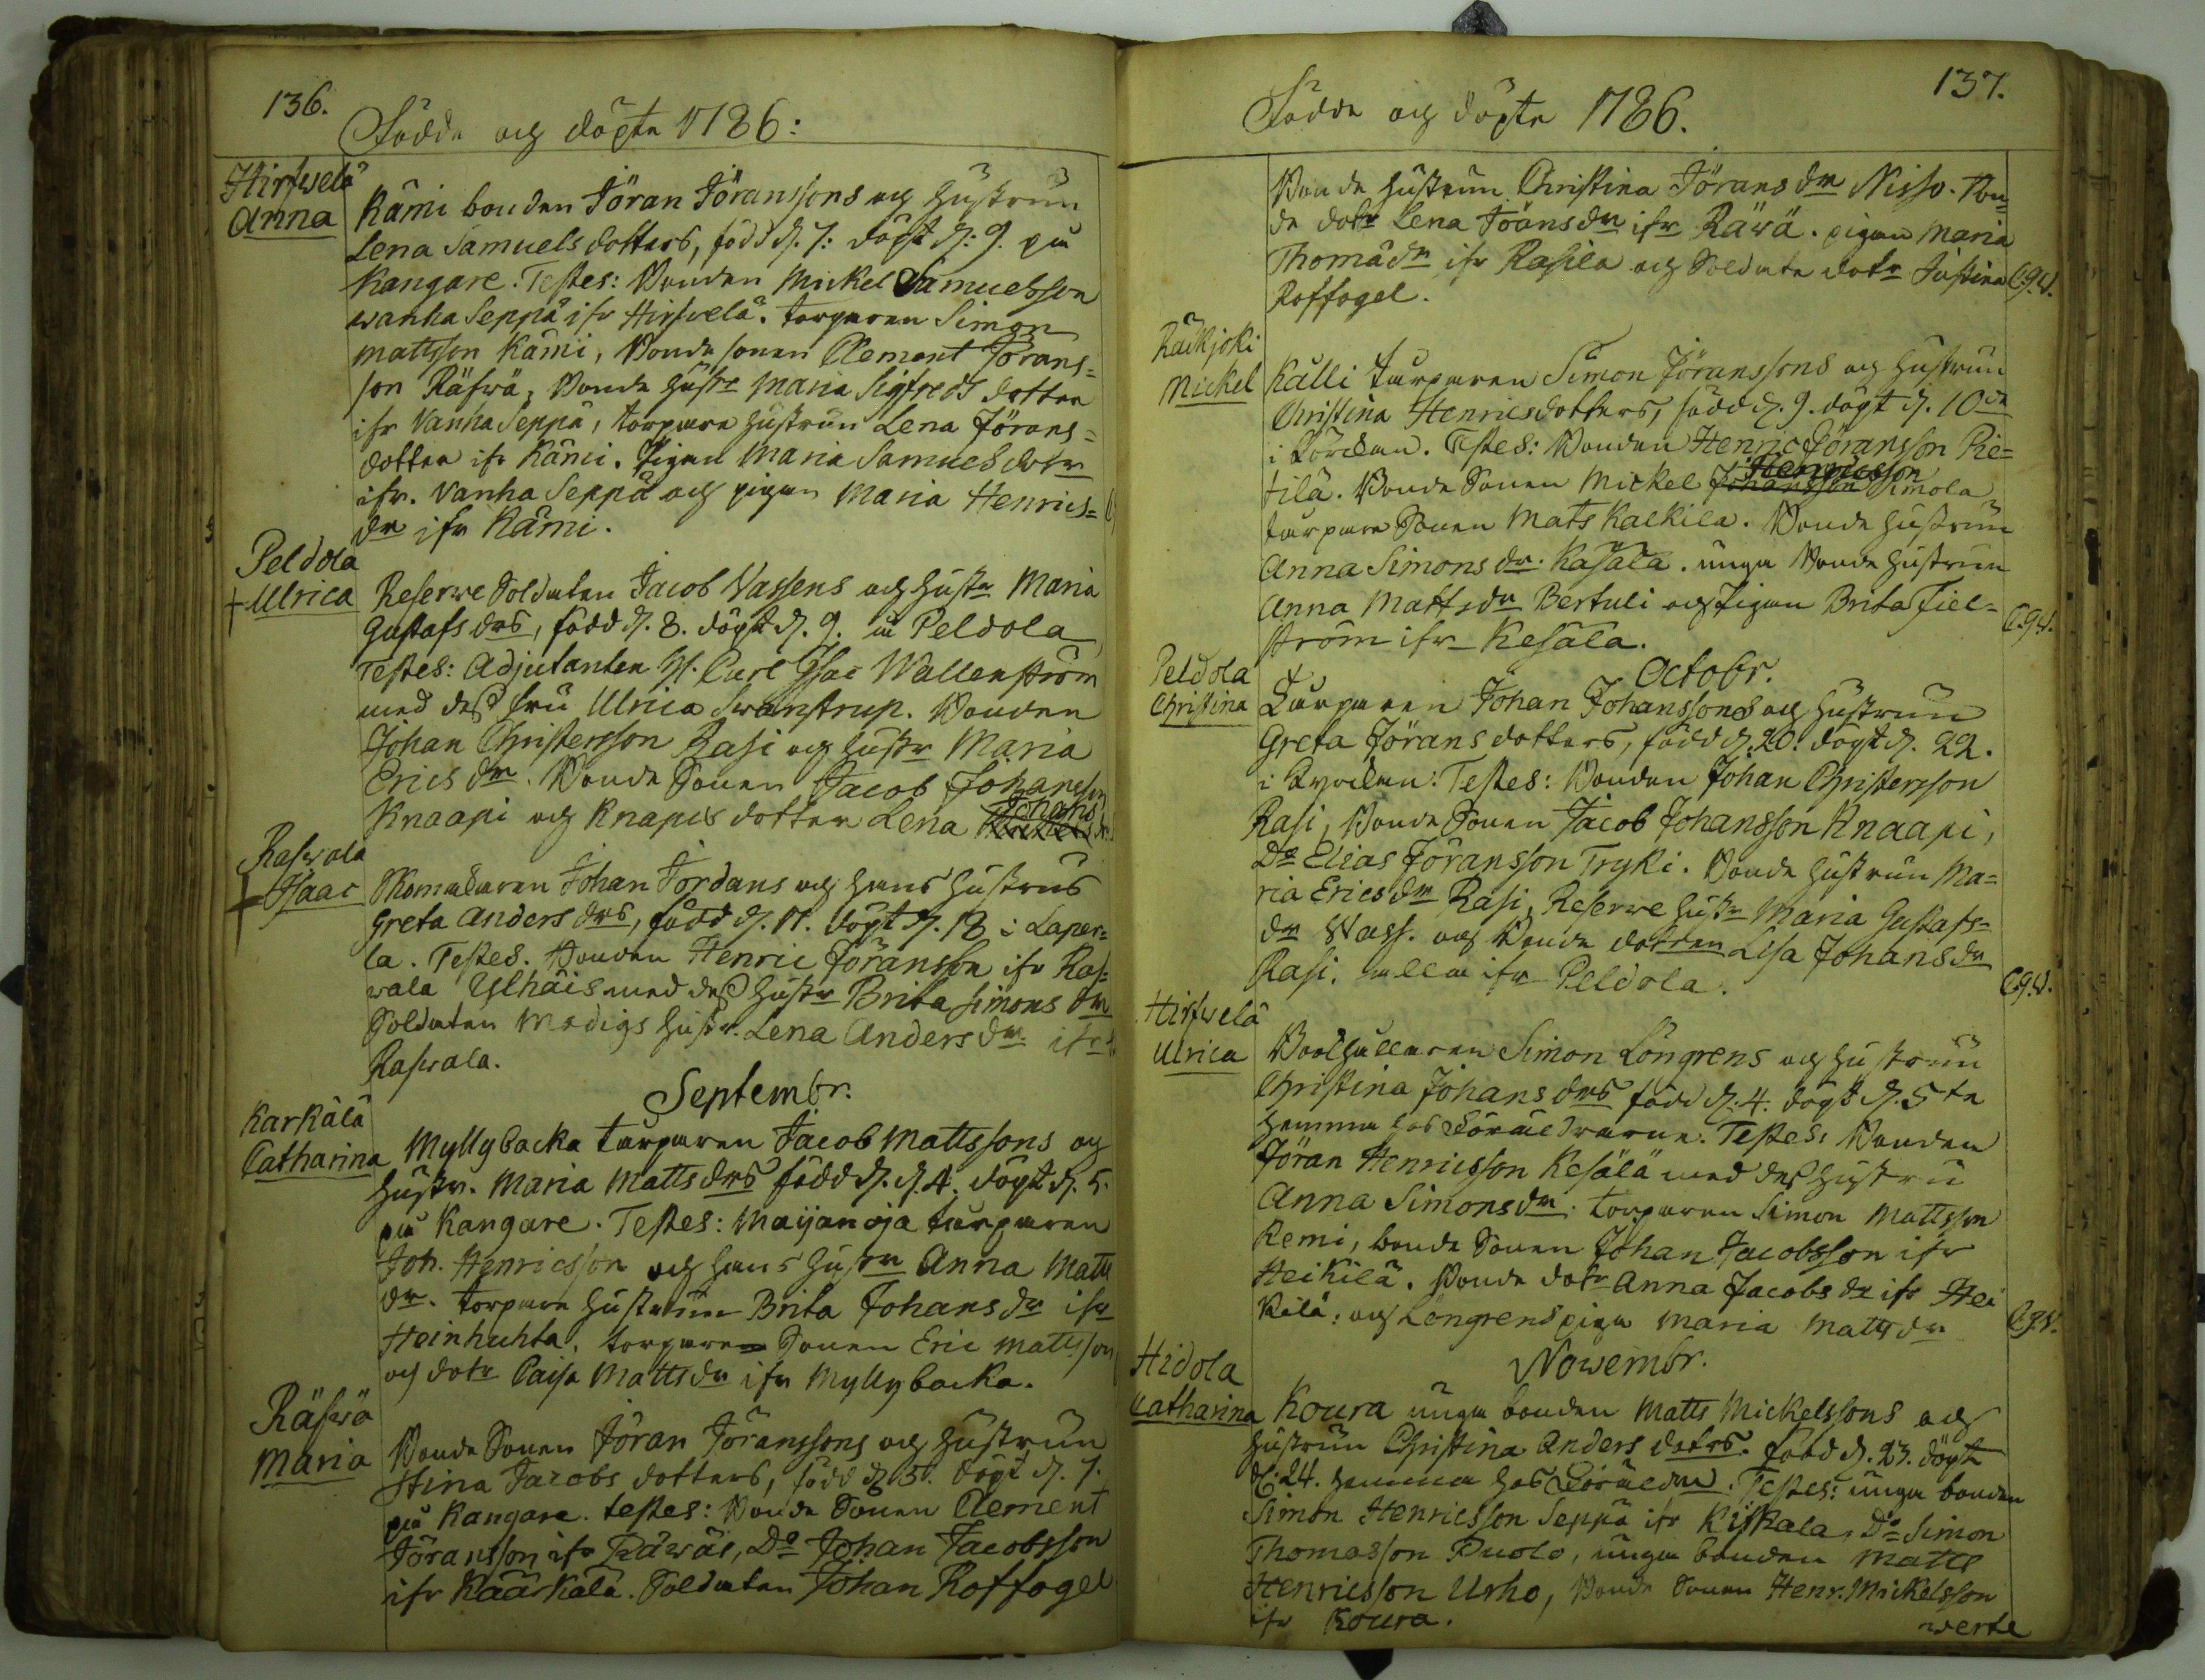 136.
Födde och döpte 1786:
Hirfwelä
Anna
Kämi bonden Jöran Jöranssons och hustrun
Lena Samuelsdotters, född d. 7: döpt d: 9. på
Kangare. Testes: Bonden Mickel Samuelsson
wanha Seppä ifr Hirfvelä. torparen Simon
Mattsson Kämi, Bonde sonen Clement Jörans=
son Räfwä, Bonde hustr Maria Sigfreds dotter
ifr Vanha Seppä, torpare hustrun Lena Jörans=
dotter ifr Kämi. Pigan Maria Samuels dotr
ifr. Vanha Seppä och pigan Maria Henrics=
dr ifr Kämi.
Peldola
+ Ulrica
Reserwe Soldaten Jacob Vassens och hustr Maria
Gustafs drs, född d. 8. döpt d. 9. i Peldola
Testes: Adjutanten H. Carl Isac Wallenström
med dess fru Ulrica Swanstrup. Bonden
Johan Christersson Rasi och hustr Maria
Erics dr. Bonde Sonen Jacob Johansson
Knaapi och Knapis dotter Lena Johans dr.
Raswala
+ Isaac
Skomakaren Johan Jordans och hans hustrus
Greta Anders drs, född d. 17. döpt d. 18 i Laper=
la. Testes. Bonden Henric Jöransson ifr Ras=
wala Ylhäis med dess hustr Brita Simons dr
Soldaten Modigs hustr. Lena Anders dr. ifr
Raswala.
Septembr.
Karkälä
Catharina
Myllybacka torparen Jacob Mattssons och
hustr. Maria Matts drs född d. d. 4. döpt d. 5.
på Kangare. Testes: Maijanoja torparen
Joh. Henricsson och hans hustr Anna Matts
dr. torpare hustrun Brita Johans dr ifr
Heinhuhta. torpare Sonen Eric Mattsson
och dotr Caisa Matts dr ifr Myllybacka.
Räfwä
Maria
Bonde Sonen Jöran Jöranssons och hustrun
Stina Jacobs dotters, född d 5. döpt d. 7.
på Kangare. testes: Bonde Sonen Clement
Jöransson ifr Räwäs, Do Johan Jacobsson
ifr Käärkälä. Soldaten Johan Roffogel
137.
Födde och döpte 1786.
Bonde hustrun Christina Jörans dr Nisso. Bon=
de dotr Lena Jöans dr ifr Räwä. pigan Maria
Thomä dr ifr Rasila och Soldate dotr Justina
Roffogel.
C.G.W.
Räikjoki
Mickel
Källi torparen Simon Jöranssons och hustrun
Christina Henricsdotters, född d. 9. döpt d. 10de
i Körckan. Testes: Bonden Henric Jöransson Pie=
tilä. Bonde Sonen Mickel Johansson Henricsson Simola
torpare Sonen Mats Kalkila. Bonde hustrun
Anna Simons dr. Kasala. unga Bonde hustrun
Anna Matts dr Bertuli och Pigan Brita Fiel=
ström ifr Kesälä.
C.G.W.
Octobr.
Peldola
Christina
Torparen Johan Johanssons och hustrun
Greta Jörans dotters, född d. 20. döpt d. 22.
i Kyrckan: Testes: Bonden Johan Christersson
Rasi, Bonde Sonen Jacob Johansson Knaapi,
Do Elias Jöransson Tryki. Bonde hustrun Ma=
ria Erics dr Rasi, Reserwe hustr Maria Gustafs=
dr Wass. och Bonde dotter Lisa Johans dr
Rasi. alla ifr Peldola.
C.G.W.
Hirfwelä
Ulrica
Böthållaren Simon Löngrens och hustrun
Christina Johans drs född d. 4. döpt d. 5te
hemma hos Föräldrarne. Testes: Bonden
Jöran Henricsson Kesälä med dess hustru
Anna Simons dr. torparen Simon Mattsson
Remi, bonde Sonen Johan Jacobsson ifr
Heikilä. Bonde dotr Anna Jacobs dr ifr Hei
kilä: och Löngrens piga Maria Matts dr
C.G.W.
Nowembr.
Hidola
Catharina
Koura unga bonden Matts Mickelssons och
hustrun Christina Anders dotrs. född d. 23. döpt
d. 24. hemma hos Föräldr. Testes: unga bonden
Simon Henricsson Seppä ifr Kiskala, Do Simon
Thomasson Puolo, unga bonden Matts
Henricsson Urho, Bonde Sonen Henr. Mickelsson
ifr Koura.
werte